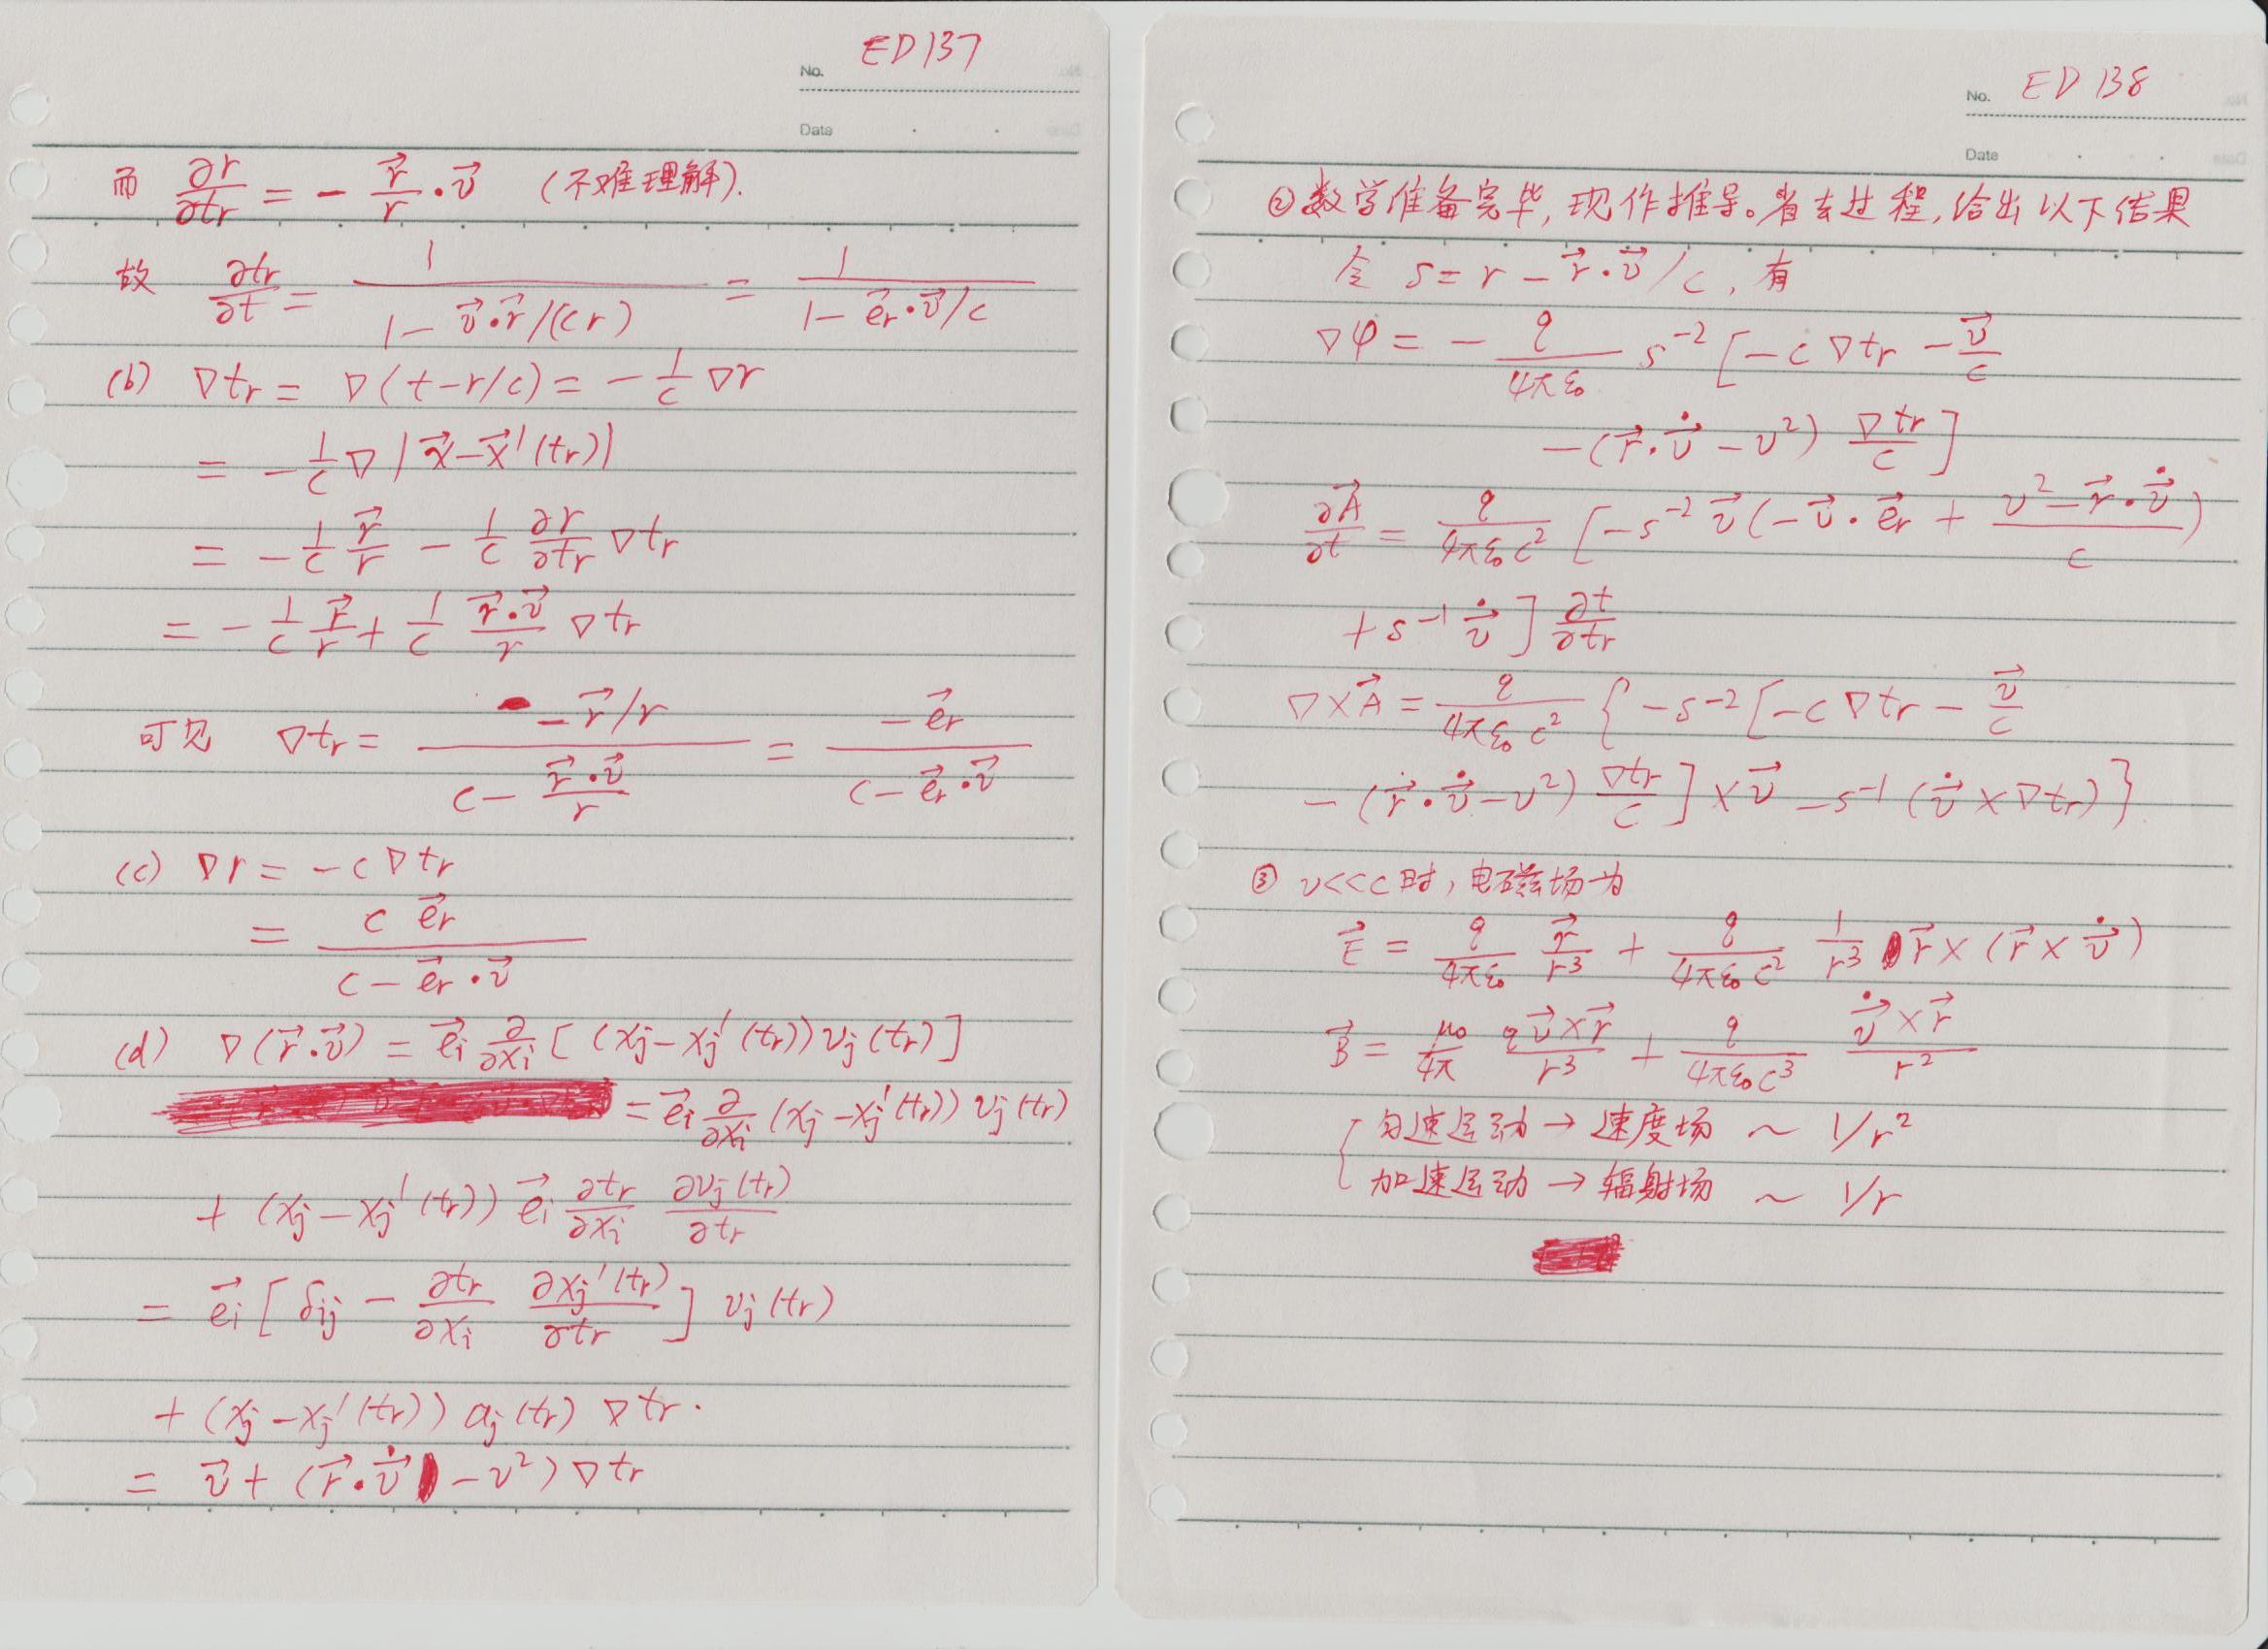 No. ED137
Date
而 ∂r/∂tr = - r⃗/r · v⃗ (不难理解).
故 ∂tr/∂t = 1/(1 - v⃗·r⃗/(cr)) = 1/(1 - e⃗r·v⃗/c)
(b) ∇tr = ∇(t-r/c) = -1/c ∇r
= -1/c ∇|x⃗-x⃗'(tr)|
= -1/c r⃗/r - 1/c ∂r/∂tr ∇tr
= -1/c r⃗/r + 1/c (r⃗·v⃗)/r ∇tr
可见 ∇tr = (-r⃗/r)/(c - (r⃗·v⃗)/r) = -e⃗r/(c - e⃗r·v⃗)
(c) ∇r = -c∇tr
= c e⃗r/(c - e⃗r·v⃗)
(d) ∇(r⃗·v⃗) = e⃗i ∂/∂xi [(xj-xj'(tr))vj(tr)]
= e⃗i ∂/∂xi (xj-xj'(tr)) vj(tr)
+ (xj-xj'(tr)) e⃗i ∂tr/∂xi ∂vj(tr)/∂tr
= e⃗i [δij - ∂tr/∂xi ∂xj'(tr)/∂tr] vj(tr)
+ (xj-xj'(tr)) aj(tr) ∇tr.
= v⃗ + (r⃗·v⃗̇ - v²)∇tr
No. ED138
Date
②数学准备完毕,现作推导。省去过程,给出以下结果
令 s = r - r⃗·v⃗/c, 有
∇φ = - q/(4πε₀) s⁻² [-c∇tr - v⃗/c
-(r⃗·v⃗̇ - v²) ∇tr/c]
∂A⃗/∂t = q/(4πε₀c²) [-s⁻² v⃗(-v⃗·e⃗r + (v² - r⃗·v⃗̇)/c)
+ s⁻¹ v⃗̇] ∂t/∂tr
∇×A⃗ = q/(4πε₀c²) {-s⁻²[-c∇tr - v⃗/c
-(r⃗·v⃗̇-v²) ∇tr/c]×v⃗ - s⁻¹(v⃗̇×∇tr)}
③ v<<c时,电磁场为
E⃗ = q/(4πε₀) r⃗/r³ + q/(4πε₀c²) 1/r³ r⃗×(r⃗×v⃗̇)
B⃗ = μ₀/4π qv⃗×r⃗/r³ + q/(4πε₀c³) v⃗̇×r⃗/r²
{匀速运动 → 速度场 ~ 1/r²
加速运动 → 辐射场 ~ 1/r